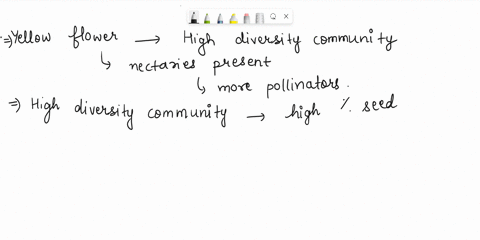 ⇒ Yellow flower → High diversity community
↳ nectaries present
↳ more pollinators.
⇒ High diversity community → high % seed